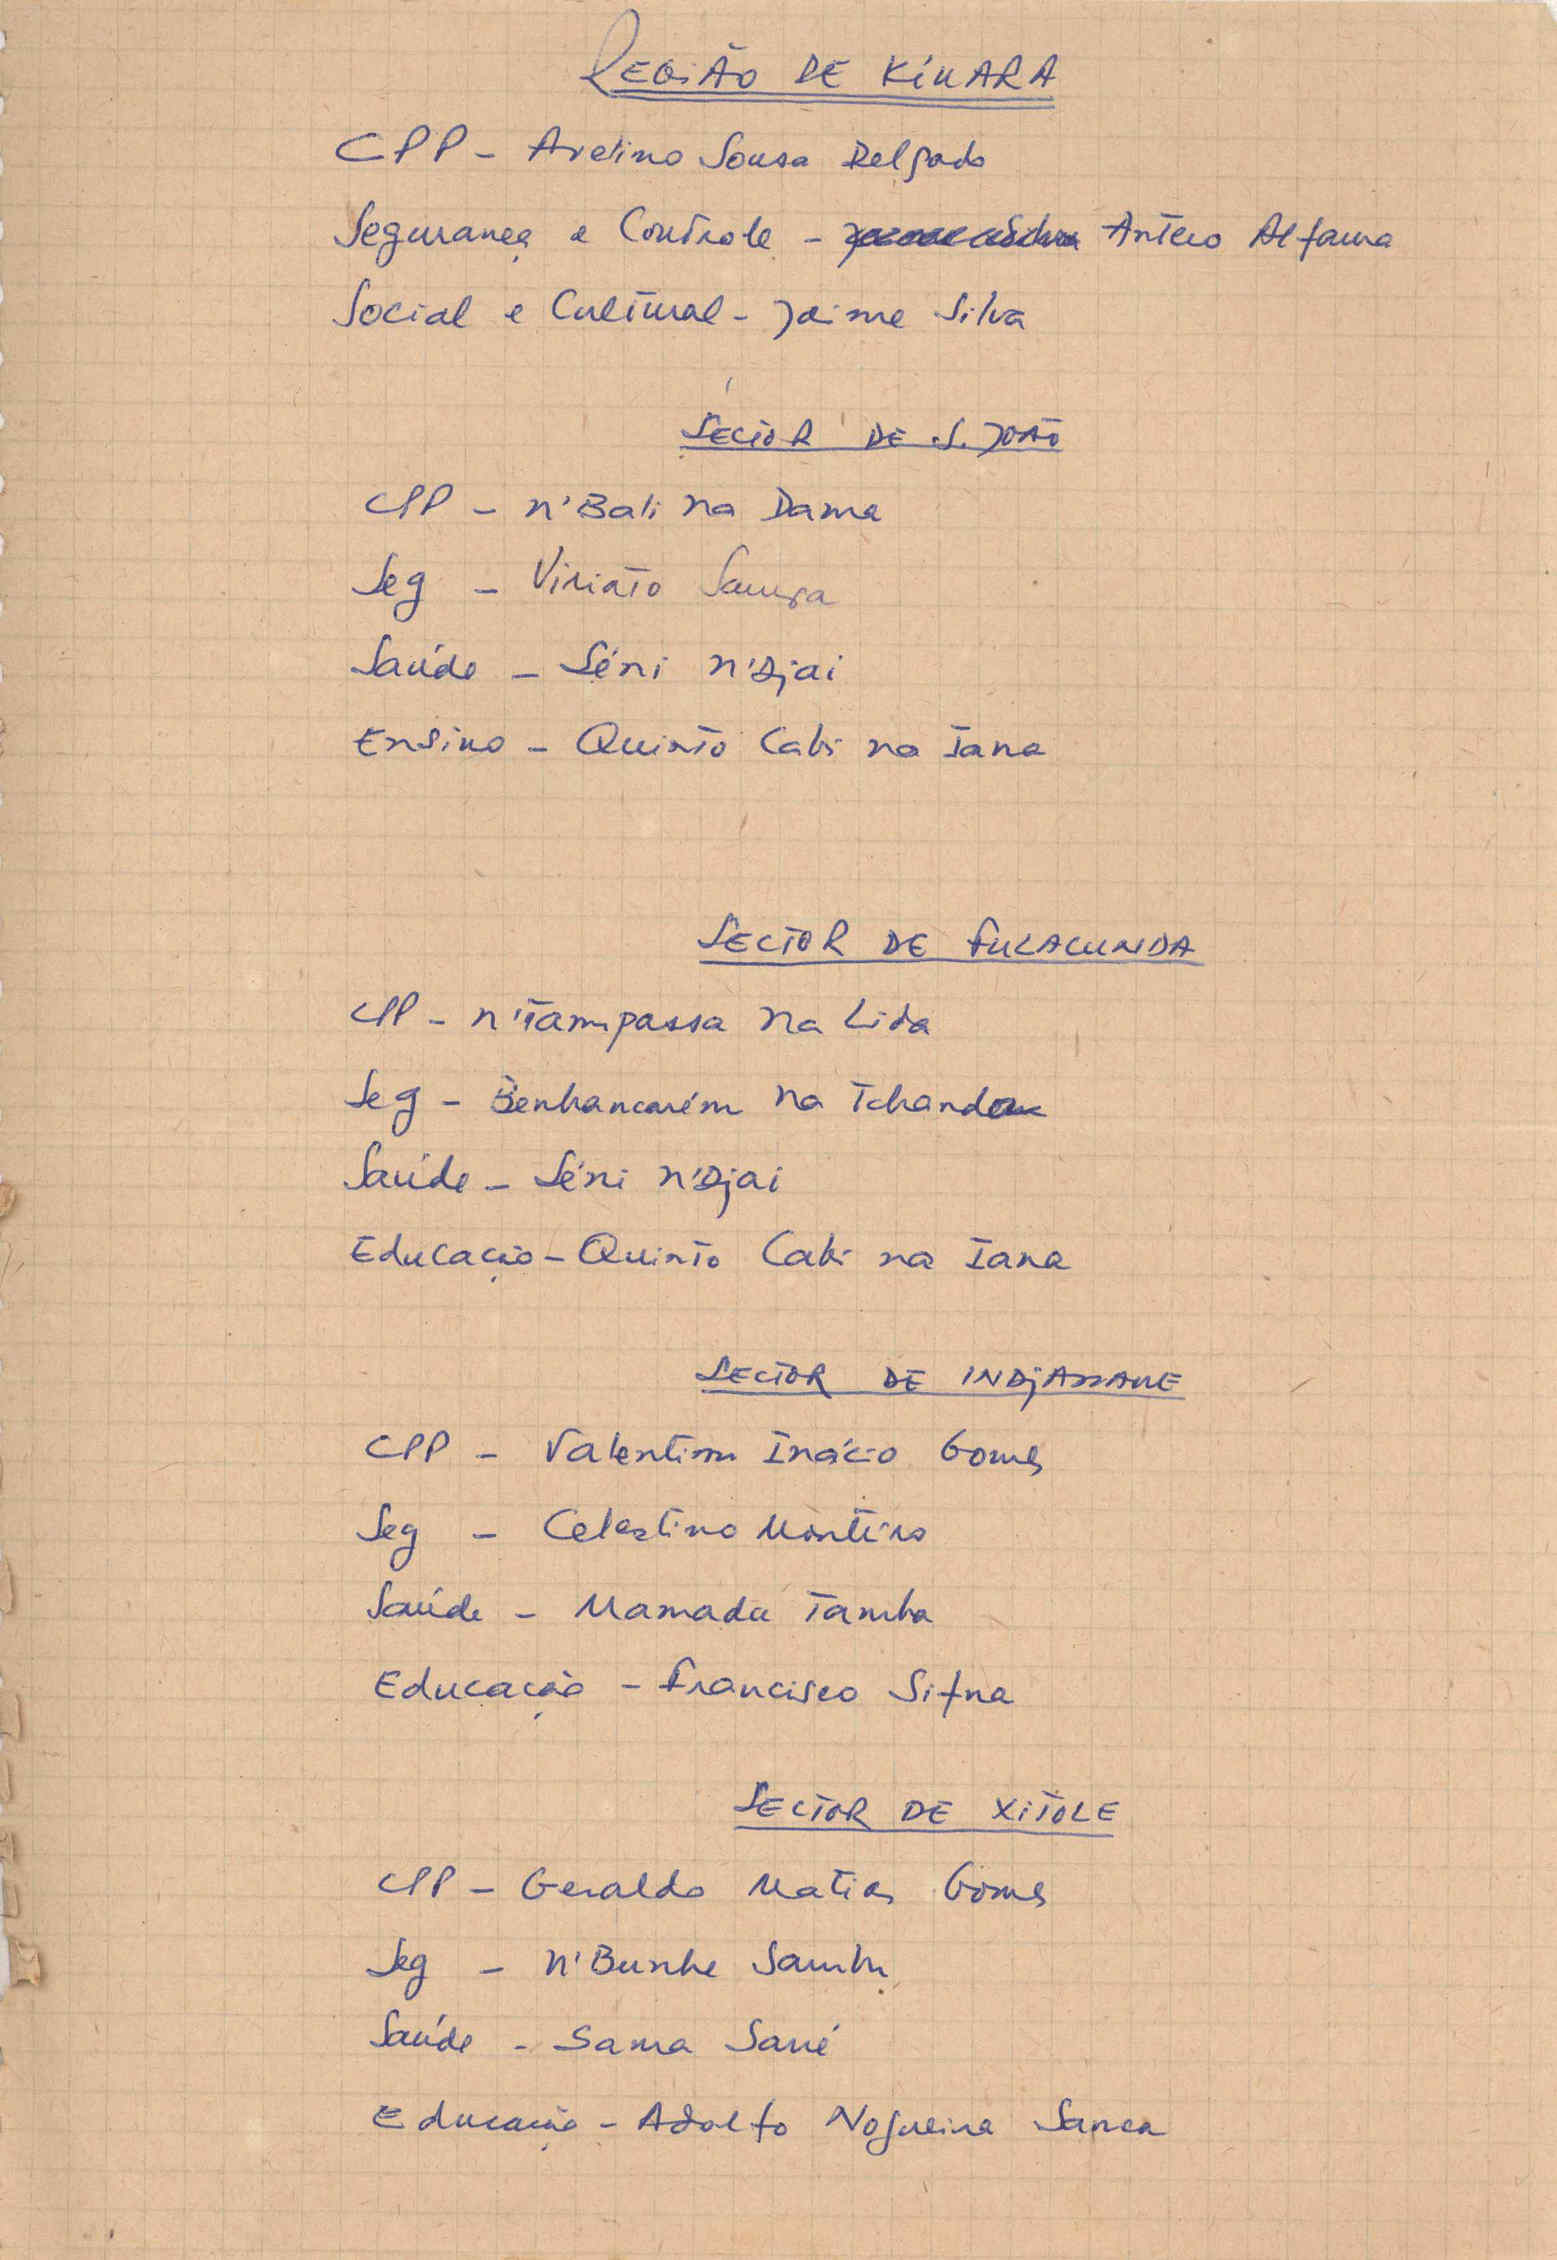 REGIÃO DE KÍNARA
CPP - Avelino Sousa Delgado
Segurança e Controle - Antero Alfama
Social e Cultural - Jaime Silva
SECTOR DE S. JOÃO
CPP - N'Bali Na Dama
Seg - Viriato
Saúde - Séni N'Djai
Ensino - Quinto Cabi na Iana
SECTOR DE FULACUNDA
CPP - N'Tampassa Na Lida
Seg - Benhancarém Na Tchanda
Saúde - Séni N'Djai
Educação - Quinto Cabi na Iana
SECTOR DE INDJASSANE
CPP - Valentim Inácio Gomes
Seg - Celestino Monteiro
Saúde - Mamadu Tamba
Educação - Francisco Sifna
SECTOR DE XITOLE
CPP - Geraldo Matias Gomes
Seg - N'Bunhe Sambu
Saúde - Sama Sané
Educação - Adolfo Nogueira Sanca